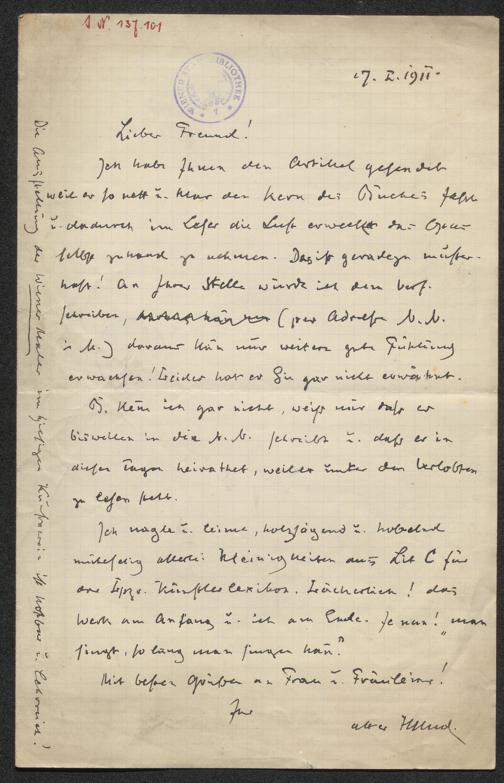 J. N. 137.101
WIENER STADTBIBLIOTHEK
17. I. 1911.
Lieber Freund!
Ich habe Ihnen den Artikel gesendet
weil er so nett u. klar den Kern des Buches faßt
u. dadurch im Leser die Lust erweckt das Opus
selbst zuhand zu nehmen. Das ist geradezu muster-
haft! An Ihrer Stelle würde ich dem Verf.
schreiben, (per Adresse N. N.
i. M.) daraus kañ nur weitere gute Fühlung
erwachsen! Leider hat er Sie gar nicht erwähnt.
B. keñe ich gar nicht, weiß nur daß er
bisweilen in die N. N. schreibt u. daß er in
diesen Tagen heirathet, weil er unter den Verlobten
zu lesen steht.
Ich nagle u. leime, holzsägend u. hobelnd
mühselig allerlei Kleinigkeiten aus Lit C für
das Lpzg. Künstlerlexikon. Lächerlich! das
Werk am Anfang u. ich am Ende. Je nun! „man
singt, so lang man singen kañ."
Mit besten Grüßen an Frau u. Fräulein!
Ihr
alter
Die Ausstellung der Wiener Maler im hiesigen Kunstverein ist kostbar u. lehrreich!